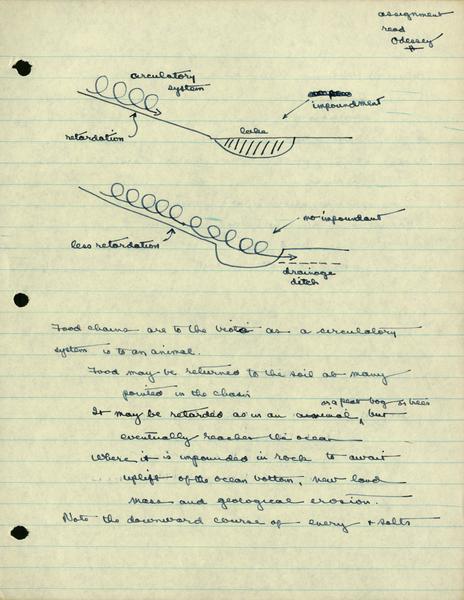 assignment
read
Odessey
circulatory
system
impoundment
retardation
lake
no impoundant
less retardation
drainage
ditch
Food chains are to the biota as a circulatory
system is to an animal.
Food may be returned to the soil at many
pointed in the chain
or a peat bog or trees
It may be retarded as in an animal, but
eventually reaches the ocean
Where it is impounded in rock to await
uplift of the ocean bottom, new land
mass and geological erosion.
Note the downward course of energy + salts